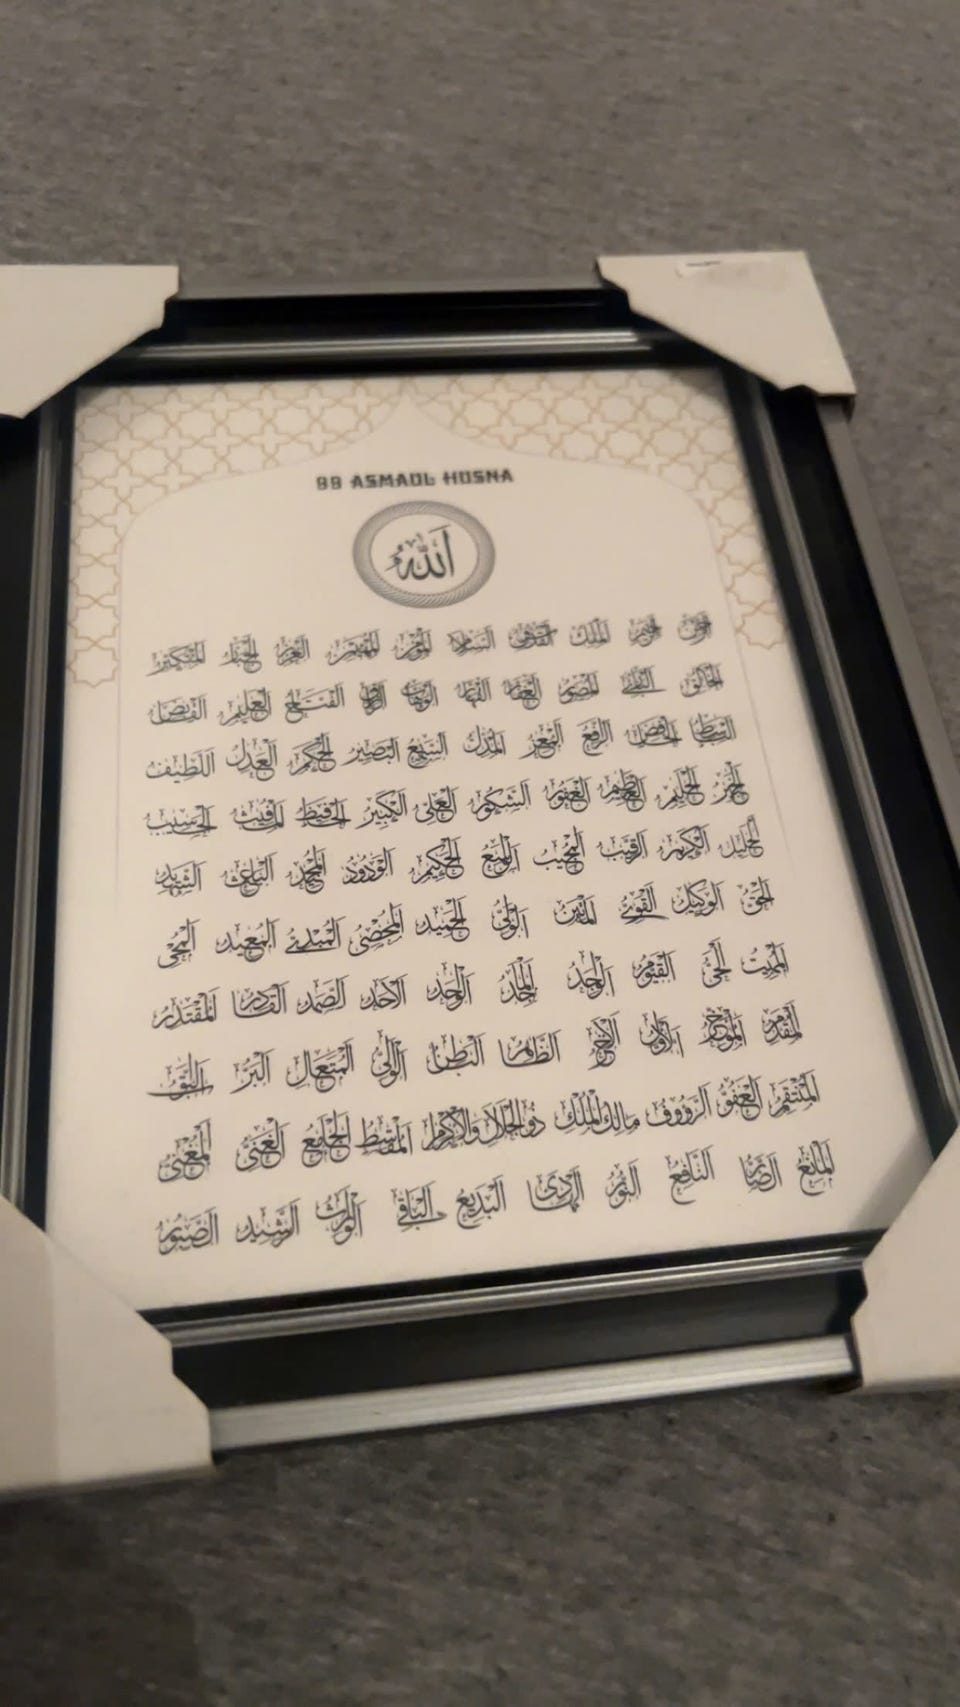 99 ASMAUL HUSNA
الله
الرحمن الرحيم الملك القدوس السلام المؤمن المهيمن العزيز الجبار المتكبر
الخالق البارئ المصور الغفار القهار الوهاب الرزاق الفتاح العليم القابض
الباسط الخافض الرافع المعز المذل السميع البصير الحكم العدل اللطيف
الخبير الحليم العظيم الغفور الشكور العلي الكبير الحفيظ المقيت الحسيب
الجليل الكريم الرقيب المجيب الواسع الحكيم الودود المجيد الباعث الشهيد
الحق الوكيل القوي المتين الولي الحميد المحصي المبدئ المعيد المحيي
المميت الحي القيوم الواجد الماجد الواحد الاحد الصمد القادر المقتدر
المقدم المؤخر الأول الآخر الظاهر الباطن الوالي المتعال البر التواب
المنتقم العفو الرؤوف مالك الملك ذو الجلال والإكرام المقسط الجامع الغني المغني
المانع الضار النافع النور الهادي البديع الباقي الوارث الرشيد الصبور